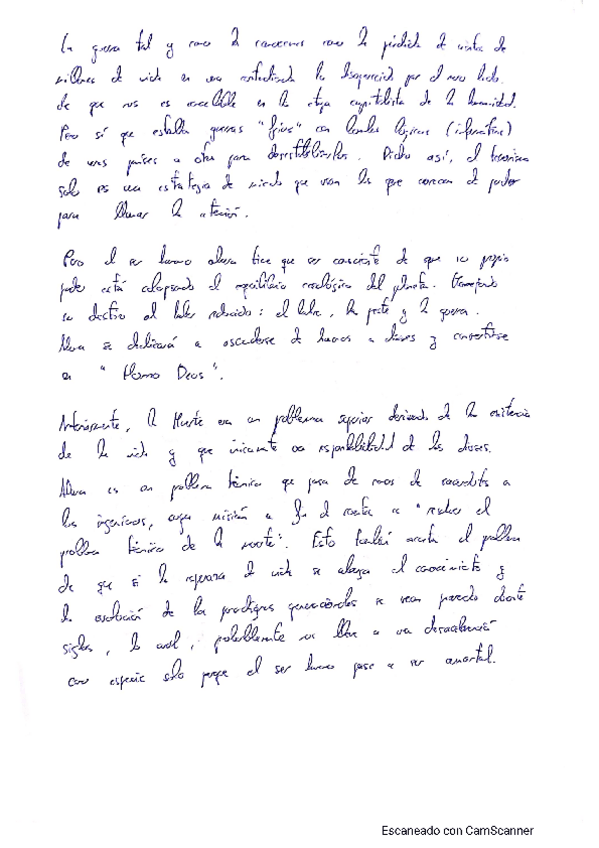 La guerra tal y como la conocemos como la pérdida de cientos de
millones de vidas en una contienda ha desaparecido por el mero hecho
de que no es rentable en la etapa capitalista de la humanidad.
Pero sí que estallan guerras "frías" con bombas lógicas (informáticas)
de unos países a otros para desestabilizarlos. Dicho así, el terrorismo
solo es una estrategia de miedo que usan los que carecen de poder
para llamar la atención.
Pero el ser humano ahora tiene que ser consciente de que su propio
poder está colapsando el equilibrio ecológico del planeta.
su destino al haber reducido: el hambre, la peste y la guerra.
Ahora se dedicará a ascenderse de humanos a dioses y convertirse
en "Homo Deus".
Anteriormente, la Muerte era un problema superior derivado de la existencia
de la vida y que únicamente era responsabilidad de los dioses.
Ahora es un problema técnico que pasa de manos de sacerdotes a
los ingenieros, cuya misión a fin de cuentas es "resolver el
problema técnico de la muerte". Esto también acarrea el problema
de que si la esperanza de vida se alarga el conocimiento y
la evolución de los prodigios generacionales se vean parados durante
siglos, lo cual, probablemente nos lleve a una desaceleración
como especie solo porque el ser humano pase a ser amortal.
Escaneado con CamScanner